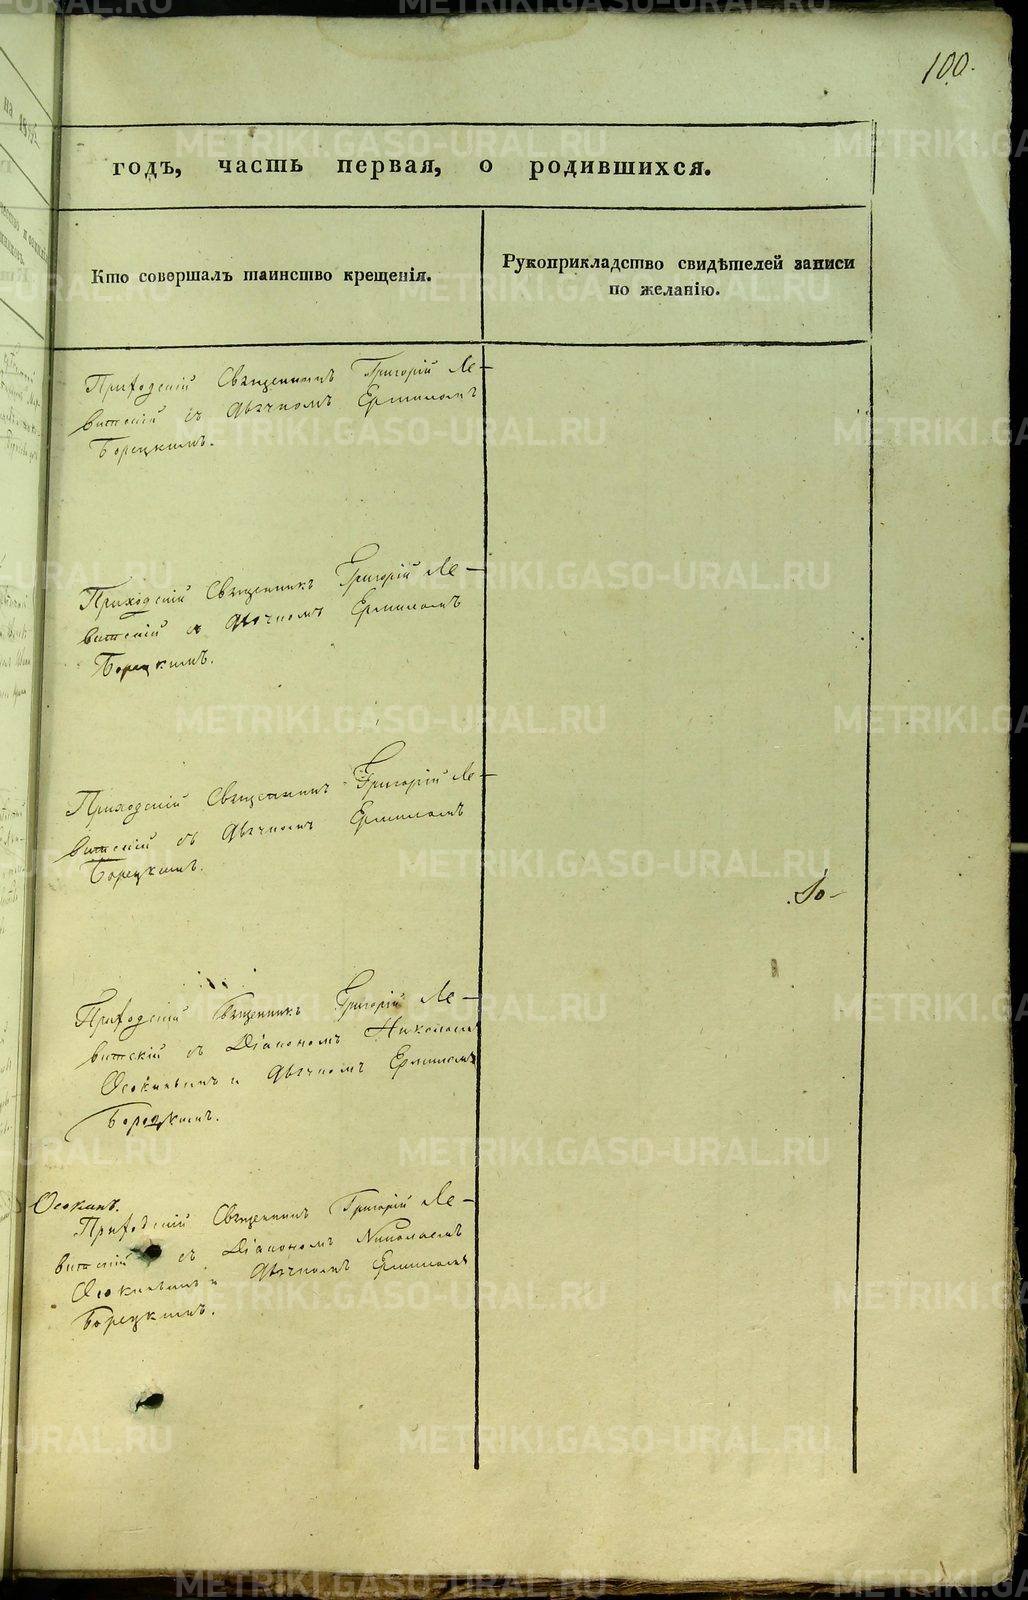 100.
годъ, часть первая, о родившихся.
Кто совершалъ таинство крещенія.
Рукоприкладство свидѣтелей записи
по желанію.
Приходскій Священникъ Григорій Ле-
витскій съ Дьячкомъ Ермиломъ
Борецкимъ.
Приходскій Священникъ Григорій Ле-
витскій съ Дьячкомъ Ермиломъ
Борецкимъ.
Приходскій Священникъ Григорій Ле-
витскій съ Дьячкомъ Ермиломъ
Борецкимъ.
Приходскій Священникъ Григорій Ле-
витскій съ Діакономъ Николаемъ
Осокинымъ и Дьячкомъ Ермиломъ
Борецкимъ.
Осокинъ.
Приходскій Священникъ Григорій Ле-
витскій съ Діакономъ Николаемъ
Осокинымъ и Дьячкомъ Ермиломъ
Борецкимъ.
METRIKI.GASO-URAL.RU